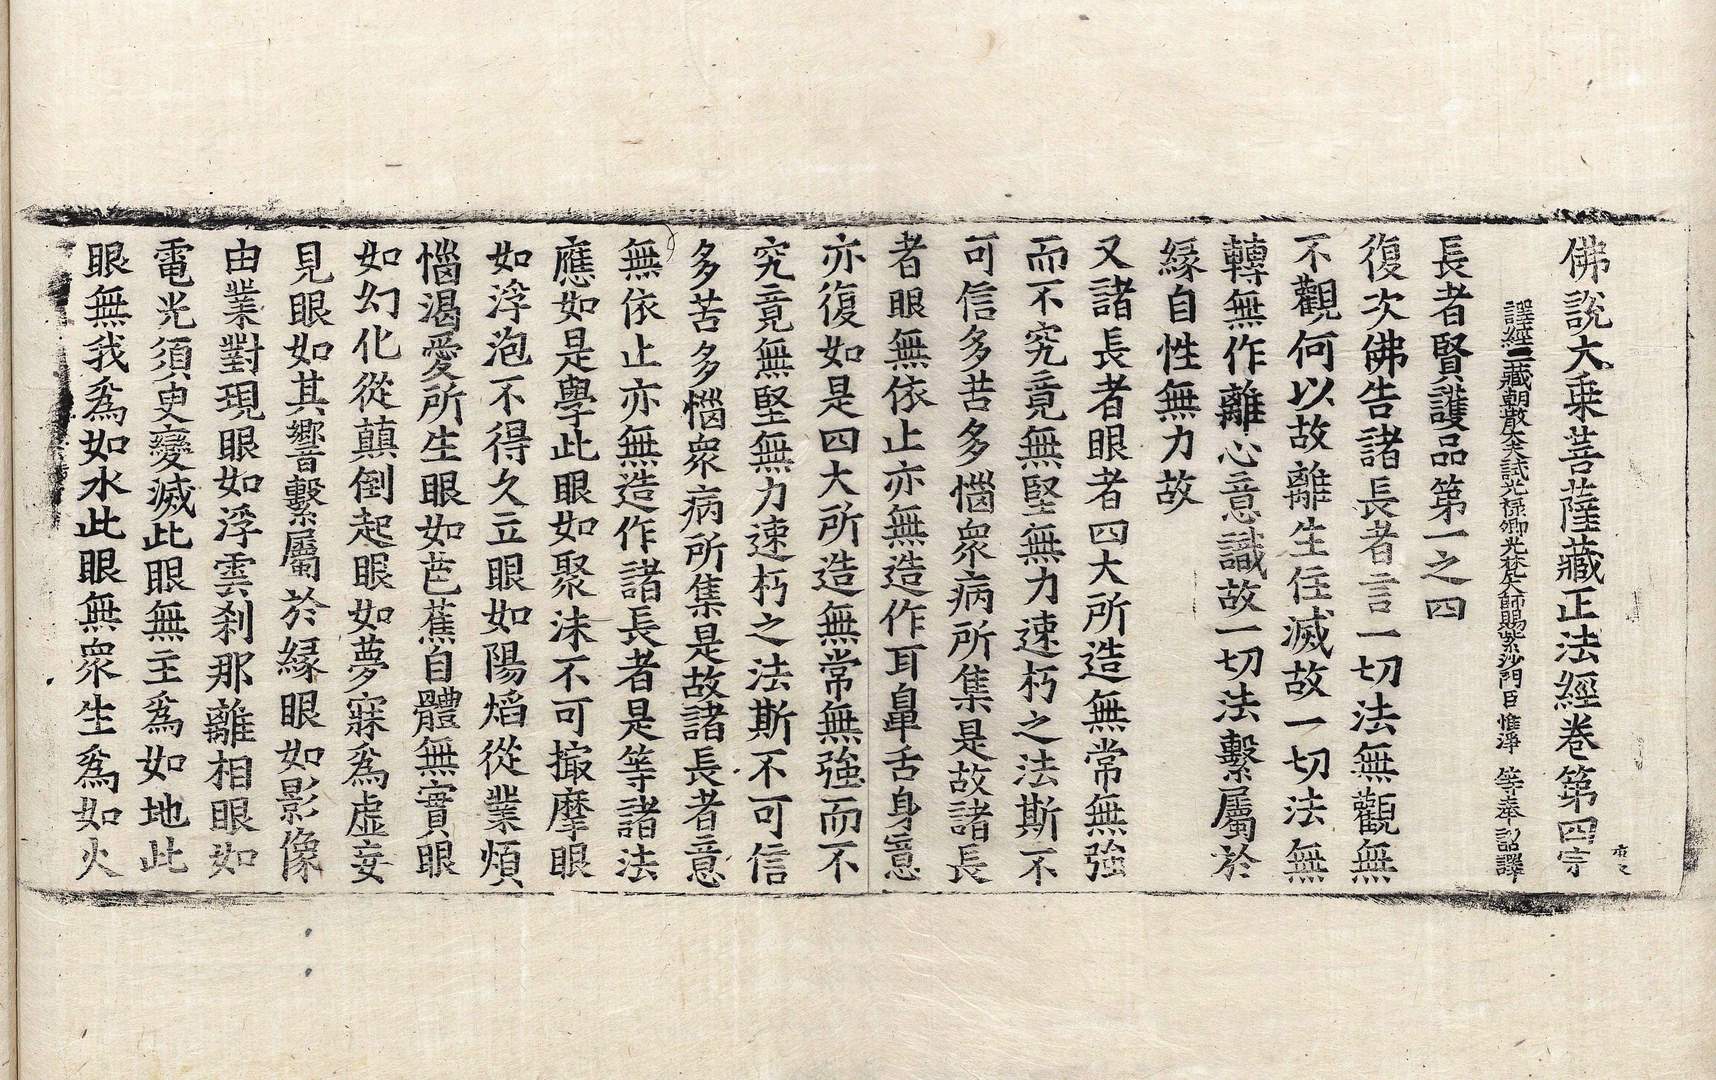 佛說大乘菩薩藏正法經卷第四 宗
譯經三藏朝散大夫試光祿卿光梵大師賜紫沙門臣惟淨等奉 詔譯
長者賢護品第一之四
復次佛告諸長者言一切法無觀無
不觀何以故離生住滅故一切法無
轉無作離心意識故一切法繫屬於
緣自性無力故
又諸長者眼者四大所造無常無強
而不究竟無堅無力速朽之法斯不
可信多苦多惱衆病所集是故諸長
者眼無依止亦無造作耳鼻舌身意
亦復如是四大所造無常無強而不
究竟無堅無力速朽之法斯不可信
多苦多惱衆病所集是故諸長者意
無依止亦無造作諸長者是等諸法
應如是學此眼如聚沫不可撮摩眼
如浮泡不得久立眼如陽焰從業煩
惱渴愛所生眼如芭蕉自體無實眼
如幻化從顛倒起眼如夢寐爲虛妄
見眼如其響繫屬於緣眼如影像
由業對現眼如浮雲刹那離相眼如
電光須臾變滅此眼無主爲如地此
眼無我爲如水此眼無衆生爲如火